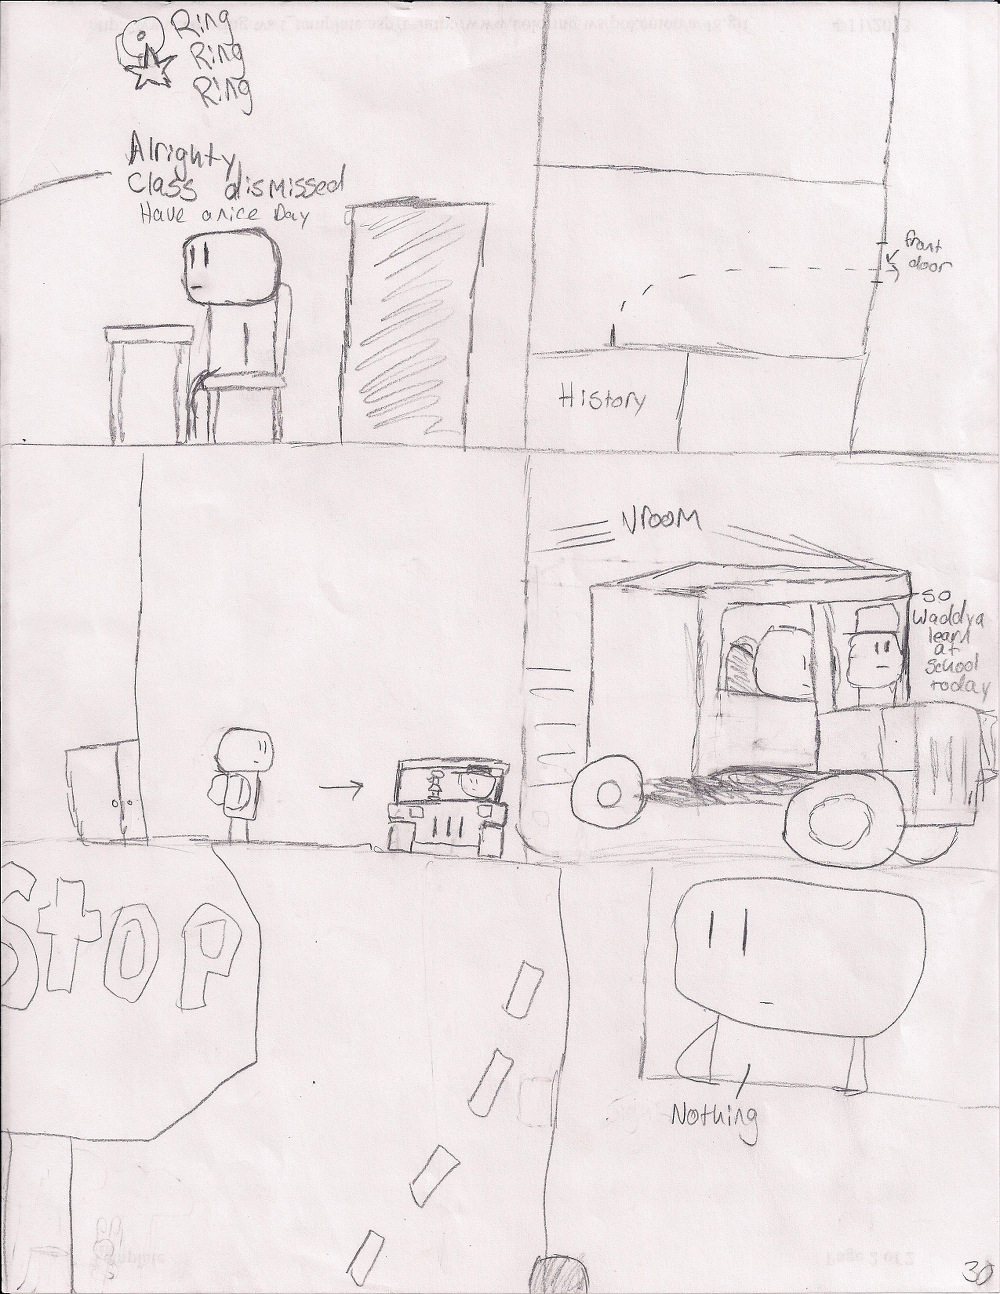 Ring
Ring
Ring
Alrighty
Class dismissed
Have a nice Day
front
door
History
Vroom
so
Waddya
learn
at
school
today
Stop
Nothing
30